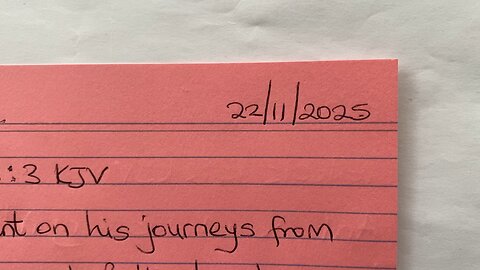 22/11/2025
:3 KJV
nt on his journeys from